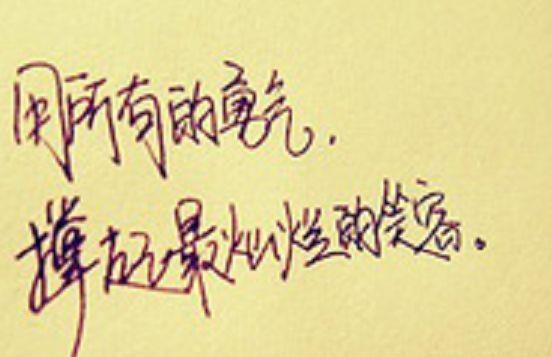 用所有的勇气.
撑起最灿烂的笑容。